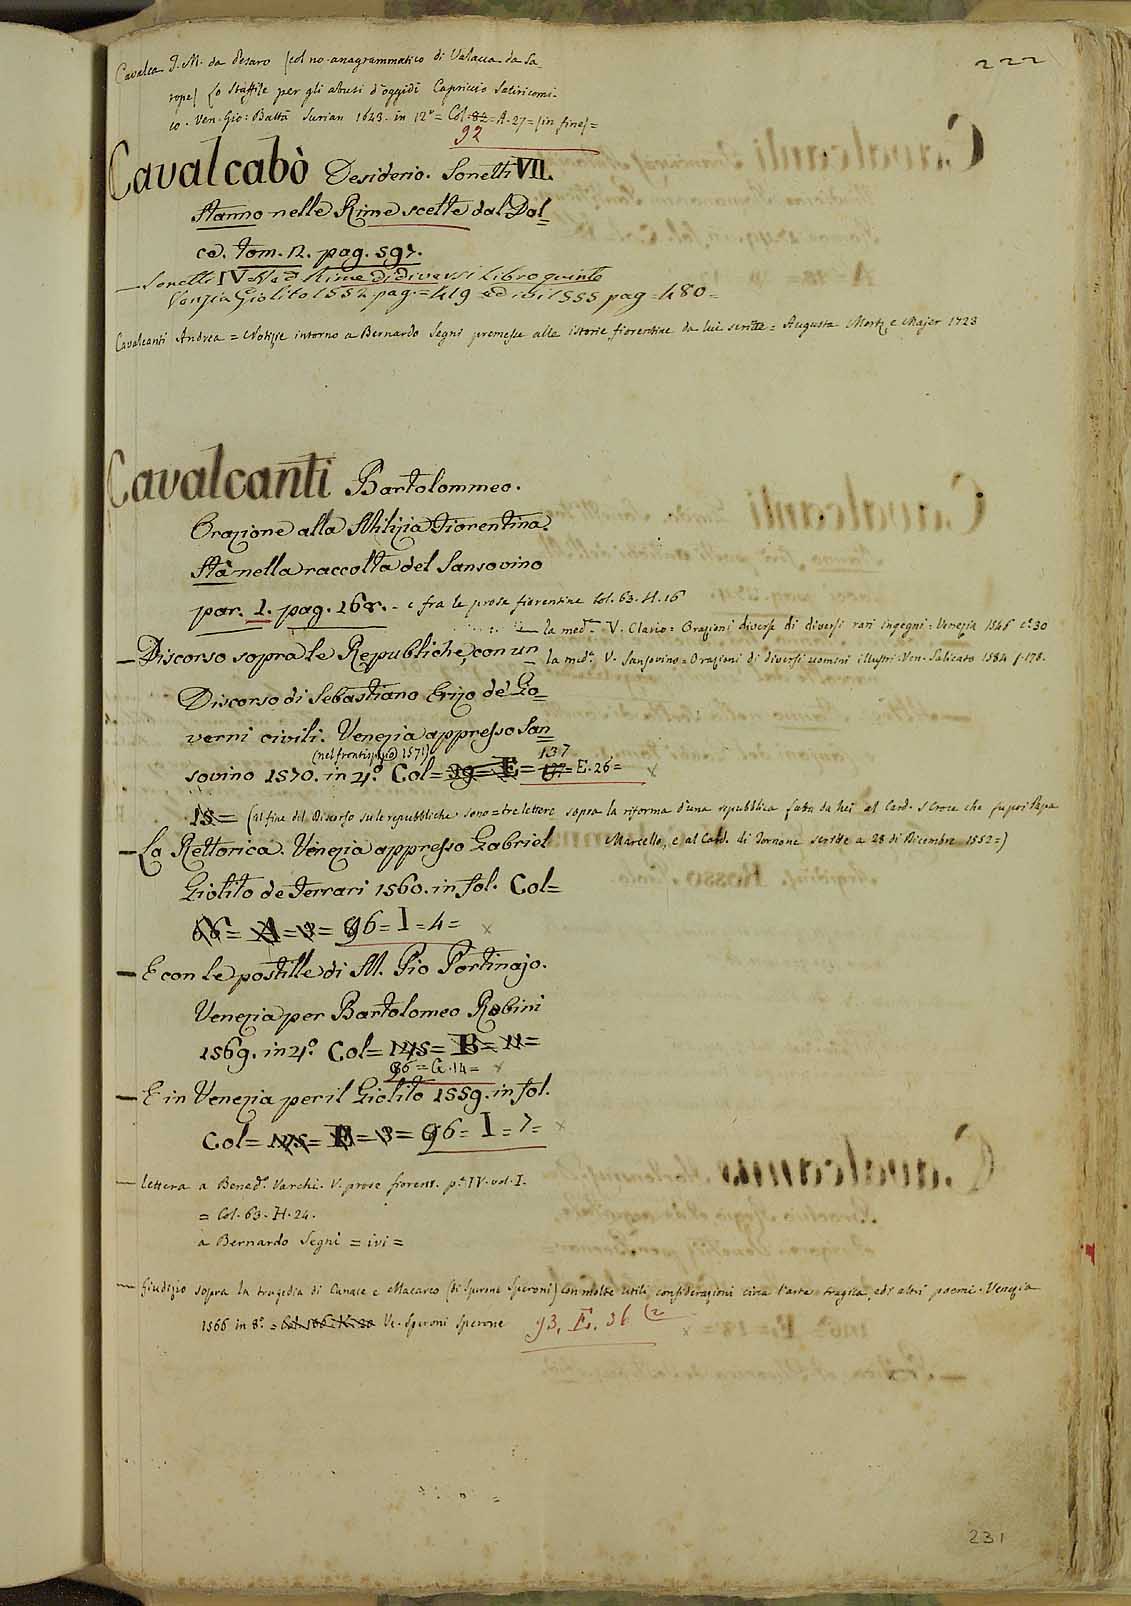 222
Cavalca I. M. da Pesaro (col no. anagrammatico di Valacca da Sa-
rope) Lo Staffile per gli abusi d'oggidi Capriccio Satiricomi-
co. Ven. Gio: Batta Surian 1643. in 12° = Col. 82 = A. 27 = (in fine) =
92
Cavalcabò Desiderio. Sonetti VII.
Stanno nelle Rime scelte dal Dol=
ce. tom. 12. pag. 597.
— Sonetti IV. Rime di diversi Libro quinto
Venezia Giolito 1552 pag. = 419 ed ivi 1555 pag = 480 =
Cavalcanti Andrea = Notizie intorno a Bernardo Segni premesse alle istorie fiorentine da lui scritte = Augusta Mertz, e Majer 1723
Cavalcanti Bartolommeo.
Orazione alla Milizia Fiorentina.
Stà nella raccolta del Sansovino
par. 1. pag. 168. - e fra le prose fiorentine Col. 63. H. 16
— la med.ª V. Clario = Orazioni diverse di diversi rari ingegni = Venezia 1546 c.ª 30
la med.ª V. Sansovino = Orazioni di diversi uomini illustri = Ven. Salicato 1584 p. 178.
— Discorso sopra le Republiche, con un
Discorso di Sebastiano Erizo de' Go=
verni civili. Venezia appresso San=
(nel frontispizio 1571) 137
sovino 1570. in 4°. Col = 39 = E = 137 = E. 26 = x
15 = (al fine del Discorso su le repubbliche sono = tre lettere sopra la riforma d'una repubblica fatta da lui al Card. S Croce che fu poi Papa
Marcello, e al Card. di Tornone scritte a 28 di Dicembre 1552 =)
— La Rettorica. Venezia appresso Gabriel
Giolito de Ferrari 1560. in fol. Col=
66 = A = 3 = 96 = I = 4 = x
— E con le postille di M. Pio Portinajo.
Venezia per Bartolomeo Robini
1569. in 4°. Col = 145 = B = 11 =
96 = G. 14 = x
— E in Venezia per il Giolito 1559. in fol.
Col = 125 = B = 3 = 96 = I = 7 = x
— lettera a Bened.º Varchi. V. prose fiorent. p.ª IV. vol. I.
= Col. 63. H. 24.
a Bernardo Segni = ivi =
— Giudizio sopra la tragedia di Canace e Macareo (di Sperone Speroni) con molte utili considerazioni circa l'arte tragica, ed' altri poemi. Venezia
1566 in 8°. = V. Speroni Sperone 93. E. 36 (2
231